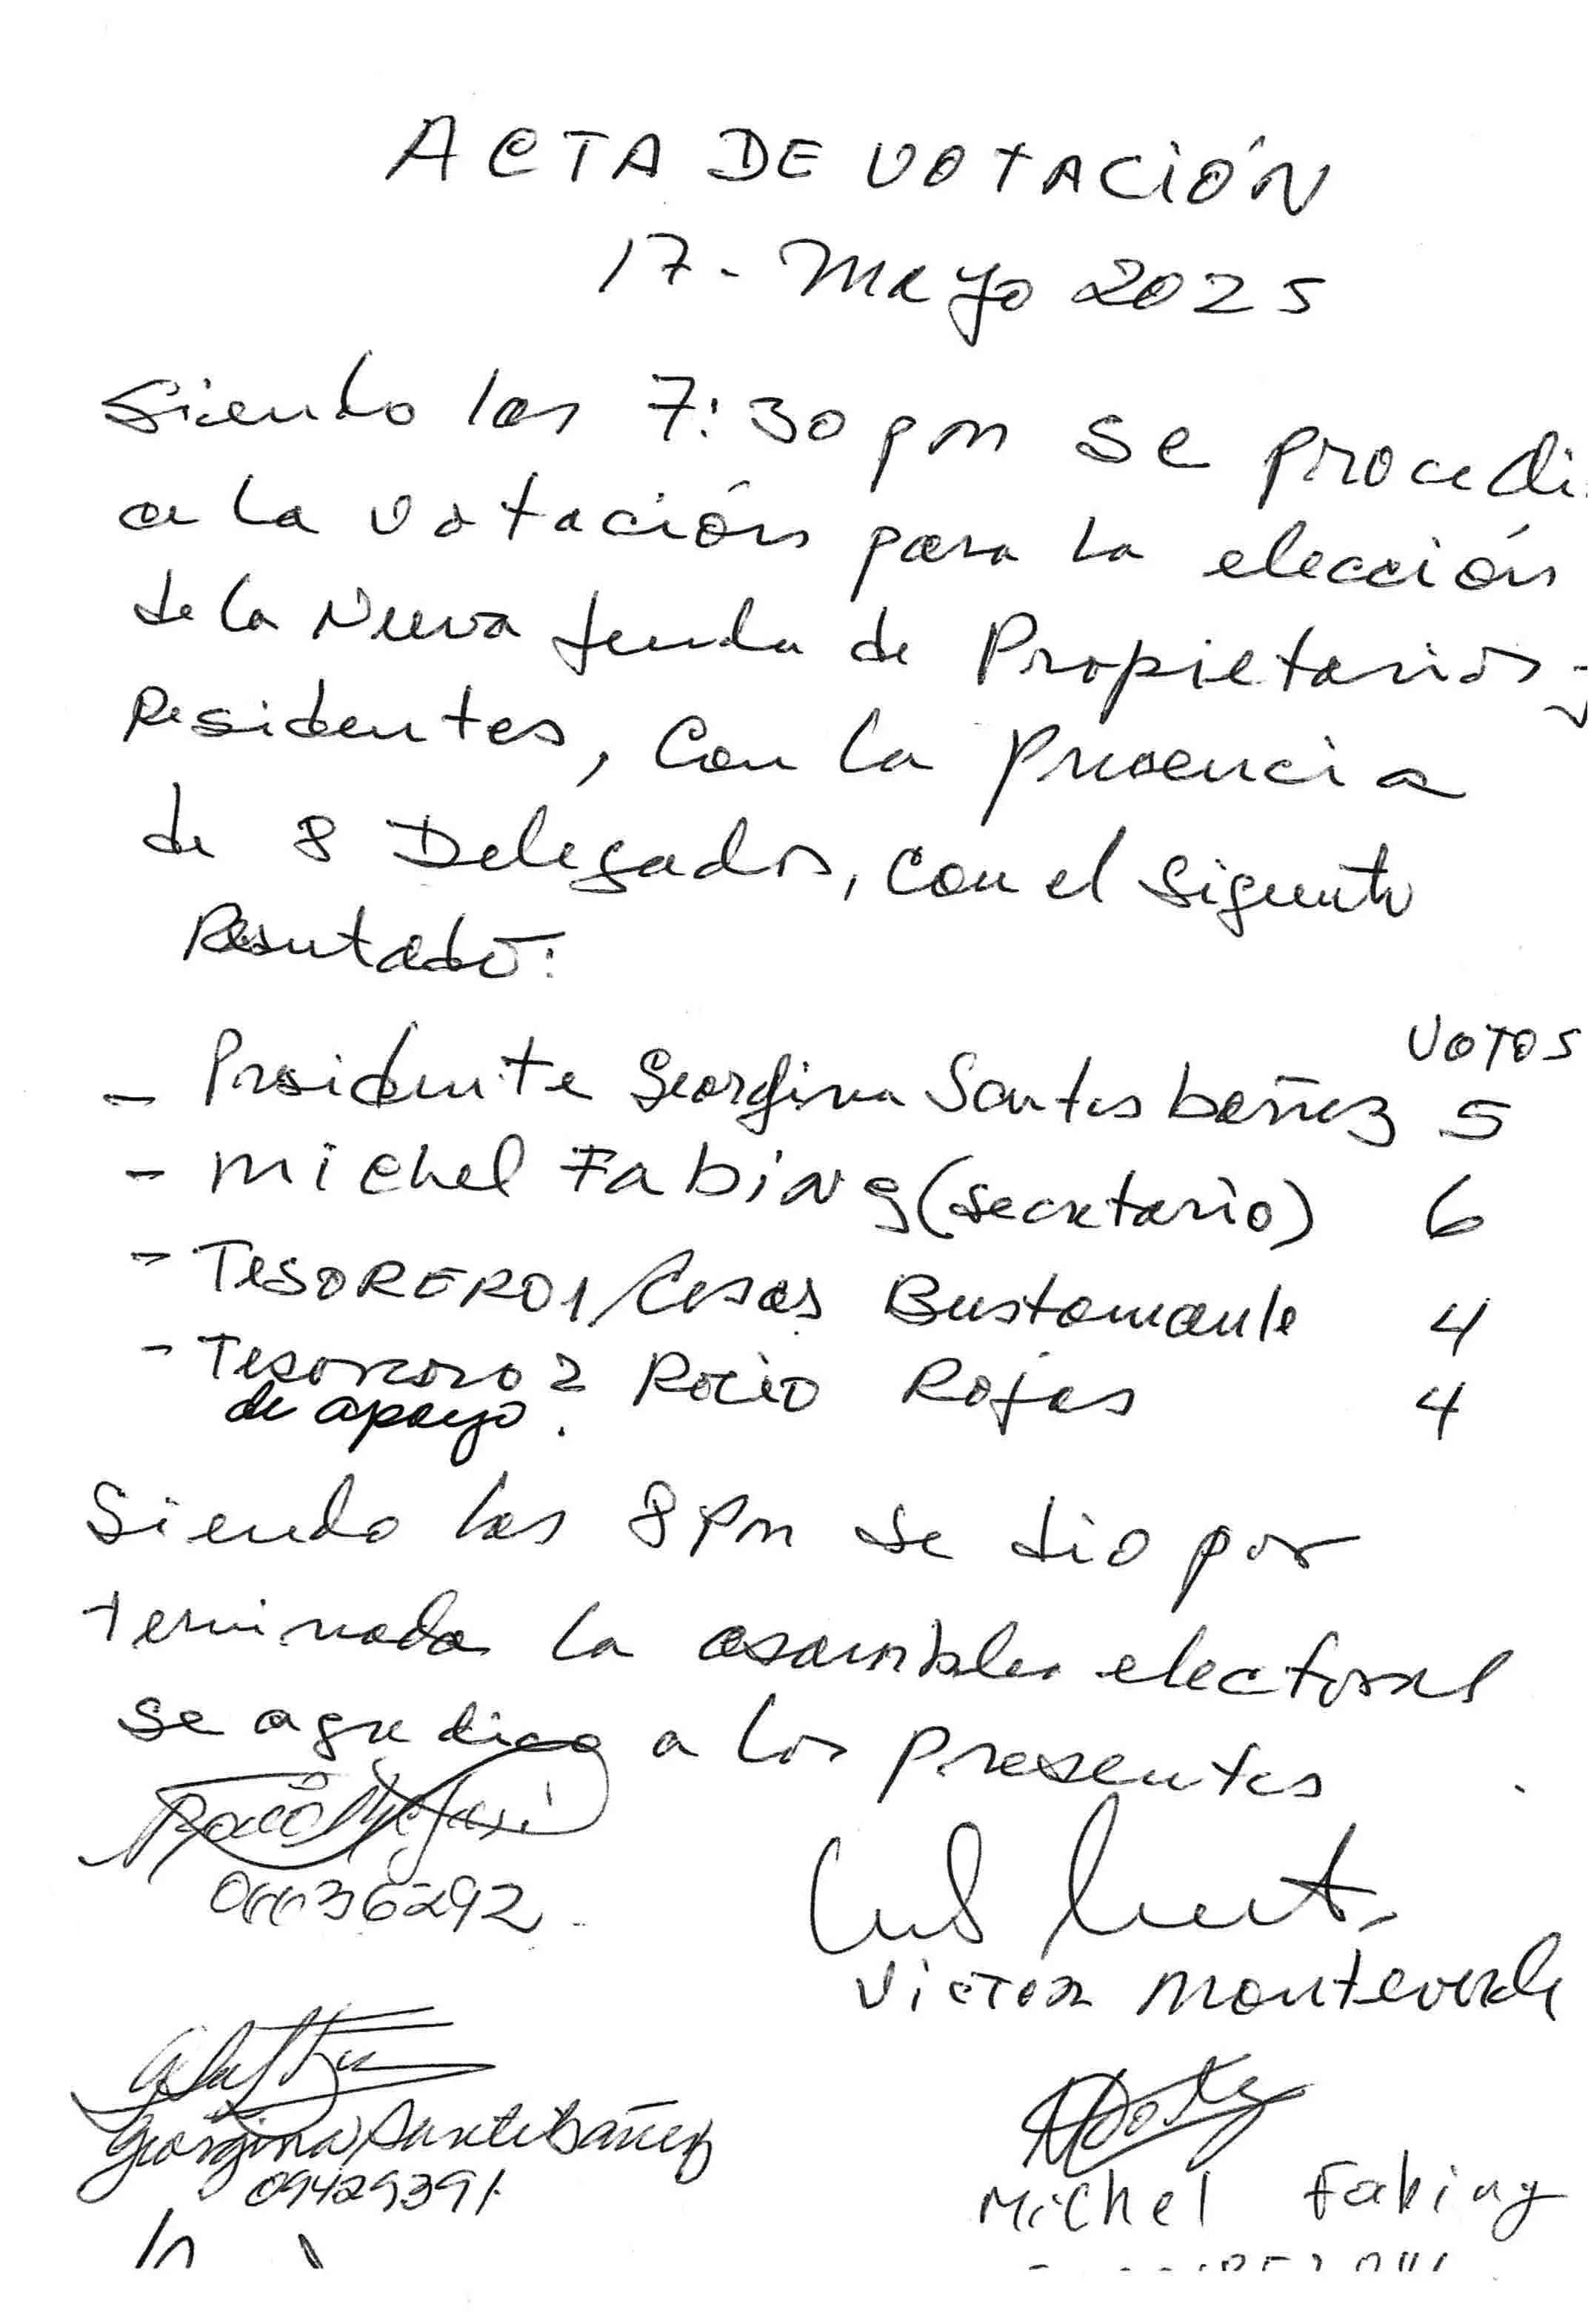 ACTA DE VOTACIÓN
17 - Mayo 2025
Siendo las 7:30 pm se procedi
a la votación para la elección
de la Nueva Junta de Propietarios y
Residentes, Con la presencia
de 8 Delegados, con el siguente
Resutado:
VOTOS
- Presidente Georgina Santisbañez 5
- Michel Fabing (secretario) 6
- TESORERO 1/ Cesar Bustamante 4
- Tesorero 2 Rocio Rojas 4
de apoyo.
Siendo las 8 pm se dio por
terminada la asamblea electoral
se agradice a los presentes
36292
Victor Monteverde
Georgina Santibáñez
09429391
Michel Fabing